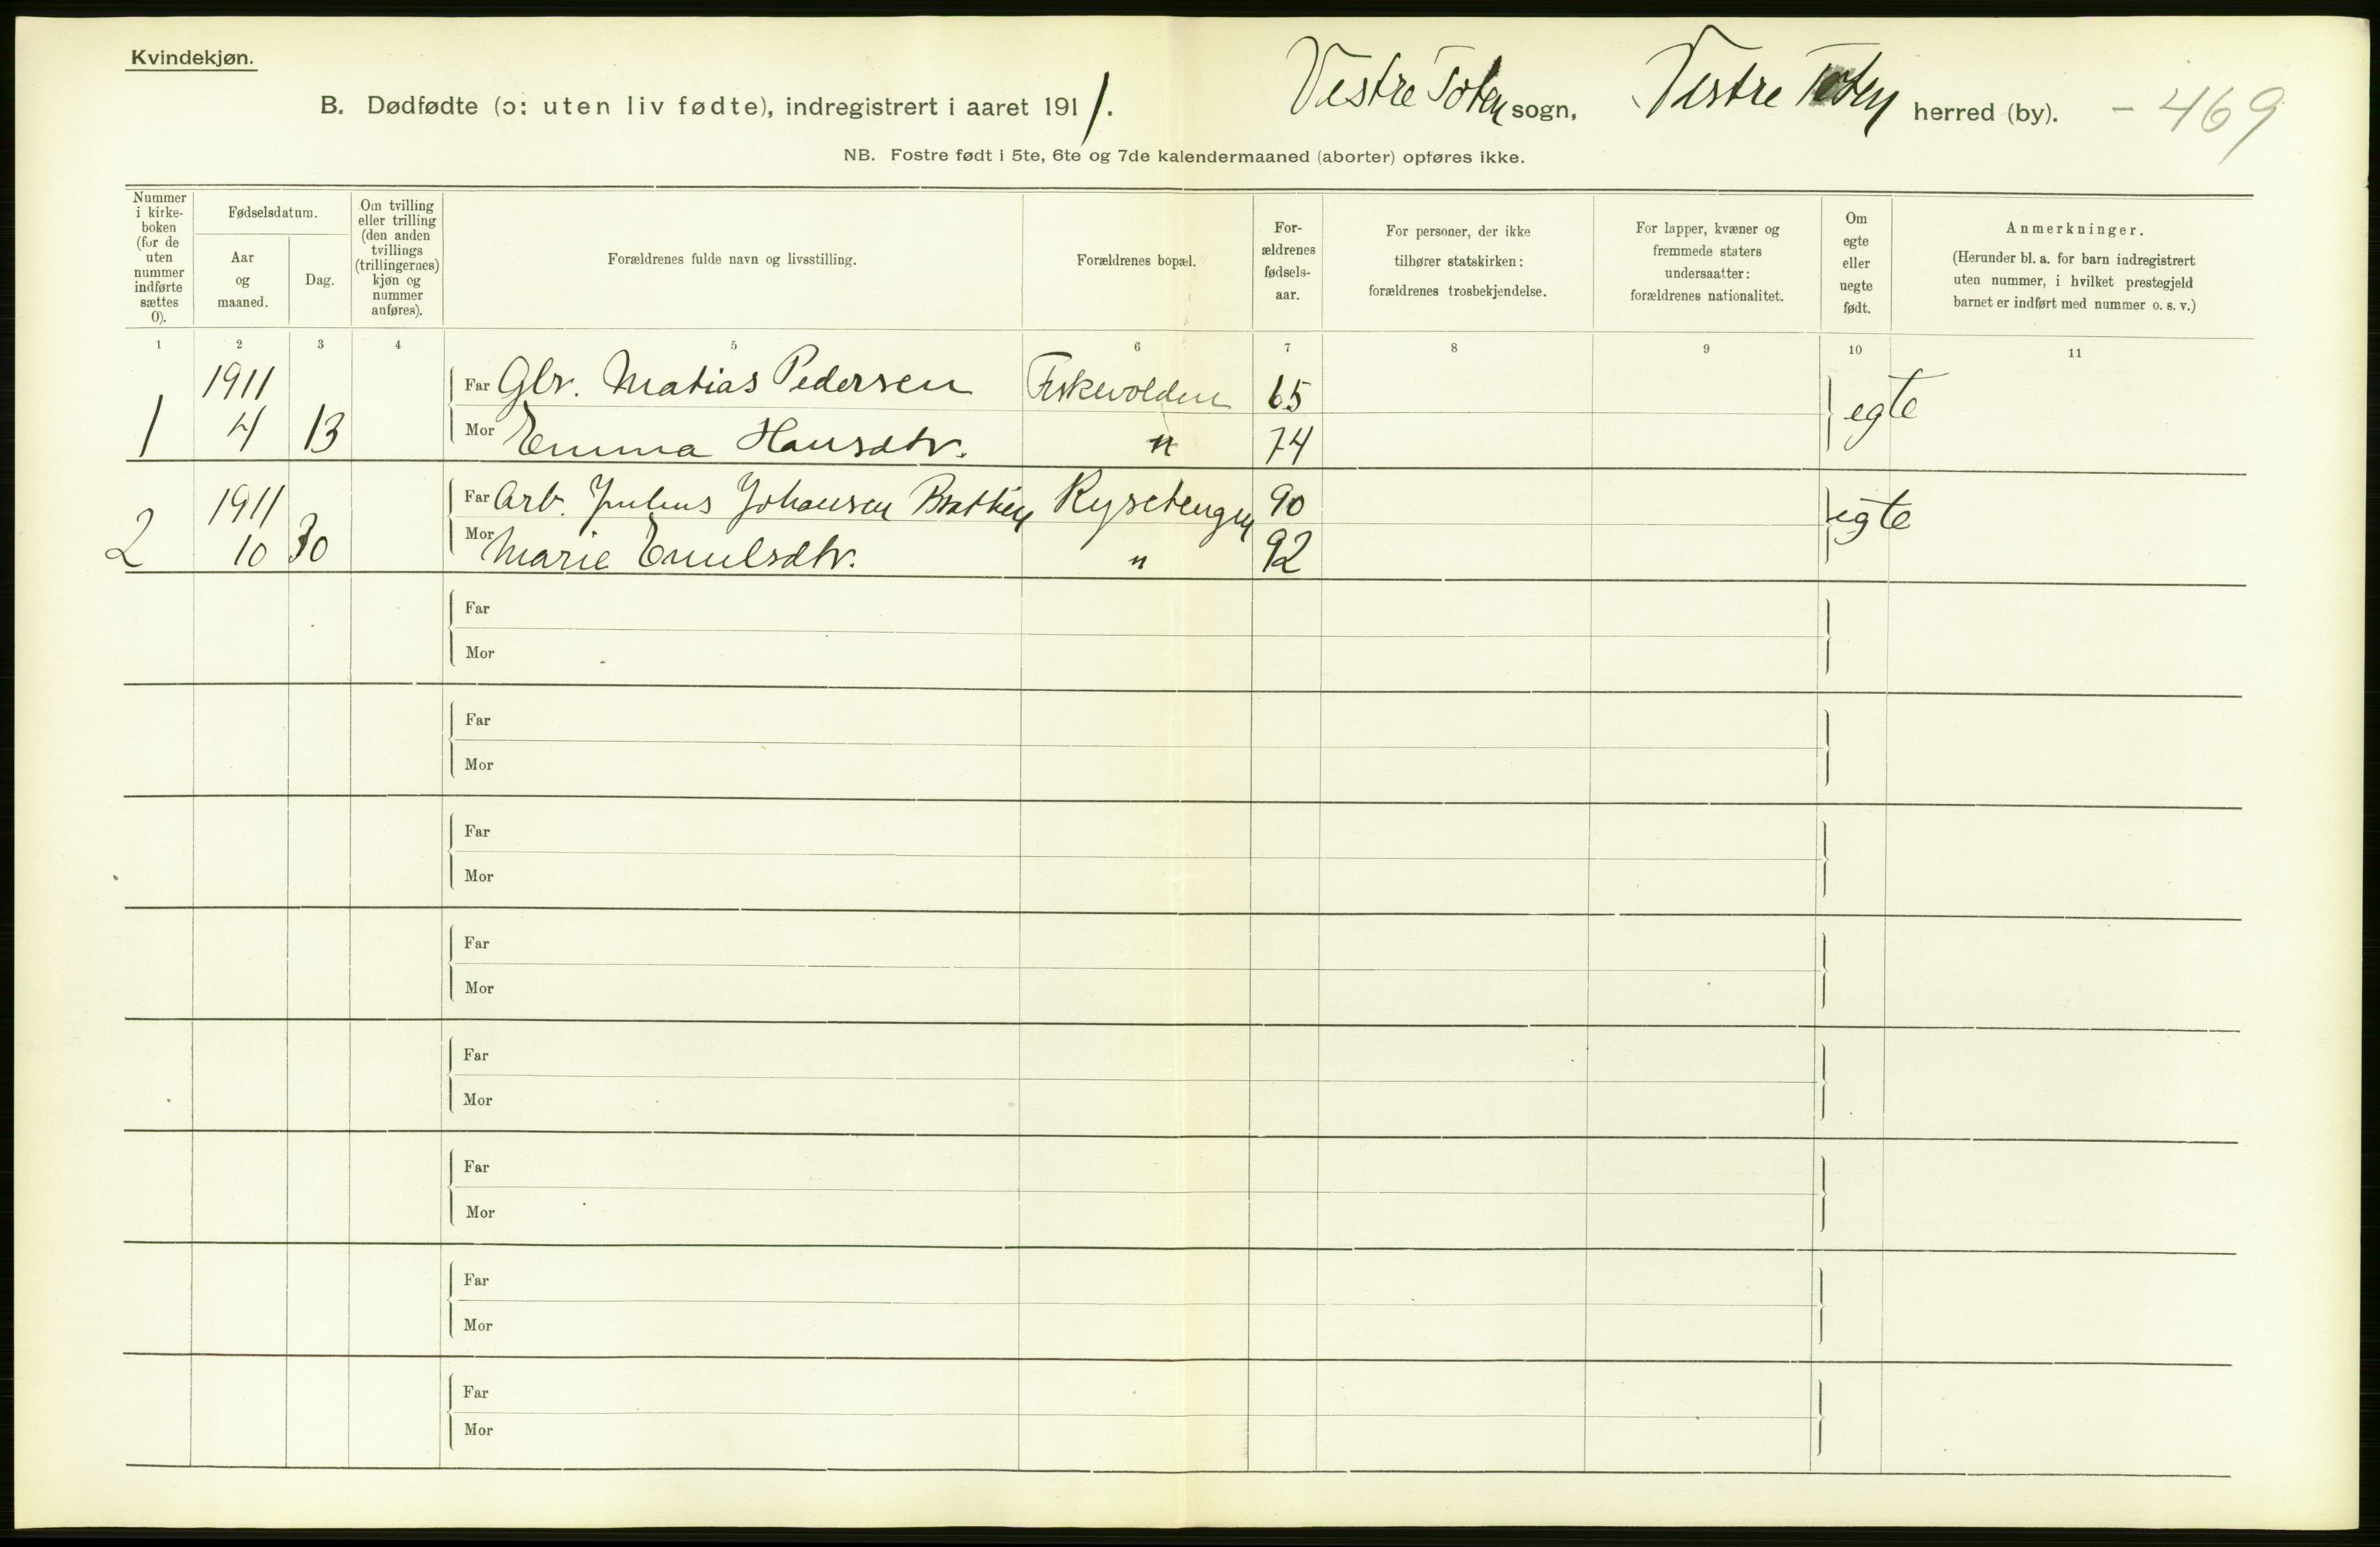 Kvindekjøn.
B. Dødfødte (ɔ: uten liv fødte), indregistrert i aaret 1911. Vestre Toten sogn, Vestre Toten herred (by). - 469
NB. Fostre født i 5te, 6te og 7de kalendermaaned (aborter) opføres ikke.
Nummer i kirke-boken (for de uten nummer indførte sættes 0).
Fødselsdatum.
Aar og maaned.
Dag.
Om tvilling eller trilling (den anden tvillings (trillingernes) kjøn og nummer anføres).
Forældrenes fulde navn og livsstilling.
Forældrenes bopæl.
For-ældrenes fødsels-aar.
For personer, der ikke tilhører statskirken: forældrenes trosbekjendelse.
For lapper, kvæner og fremmede staters undersaatter: forældrenes nationalitet.
Om egte eller uegte født.
Anmerkninger.
(Herunder bl. a. for barn indregistrert uten nummer, i hvilket prestegjeld barnet er indført med nummer o. s. v.)
1 2 3 4 5 6 7 8 9 10 11
1911 Far Gbr. Matias Pedersen Fiskevolden 65 egte
1 4 13 Mor Emma Hansdtr. " 74
1911 Far Arb. Julius Johansen Bratlien Rysetengen 90 egte
2 10 30 Mor Marie Emilsdtr. " 92
Far
Mor
Far
Mor
Far
Mor
Far
Mor
Far
Mor
Far
Mor
Far
Mor
Far
Mor